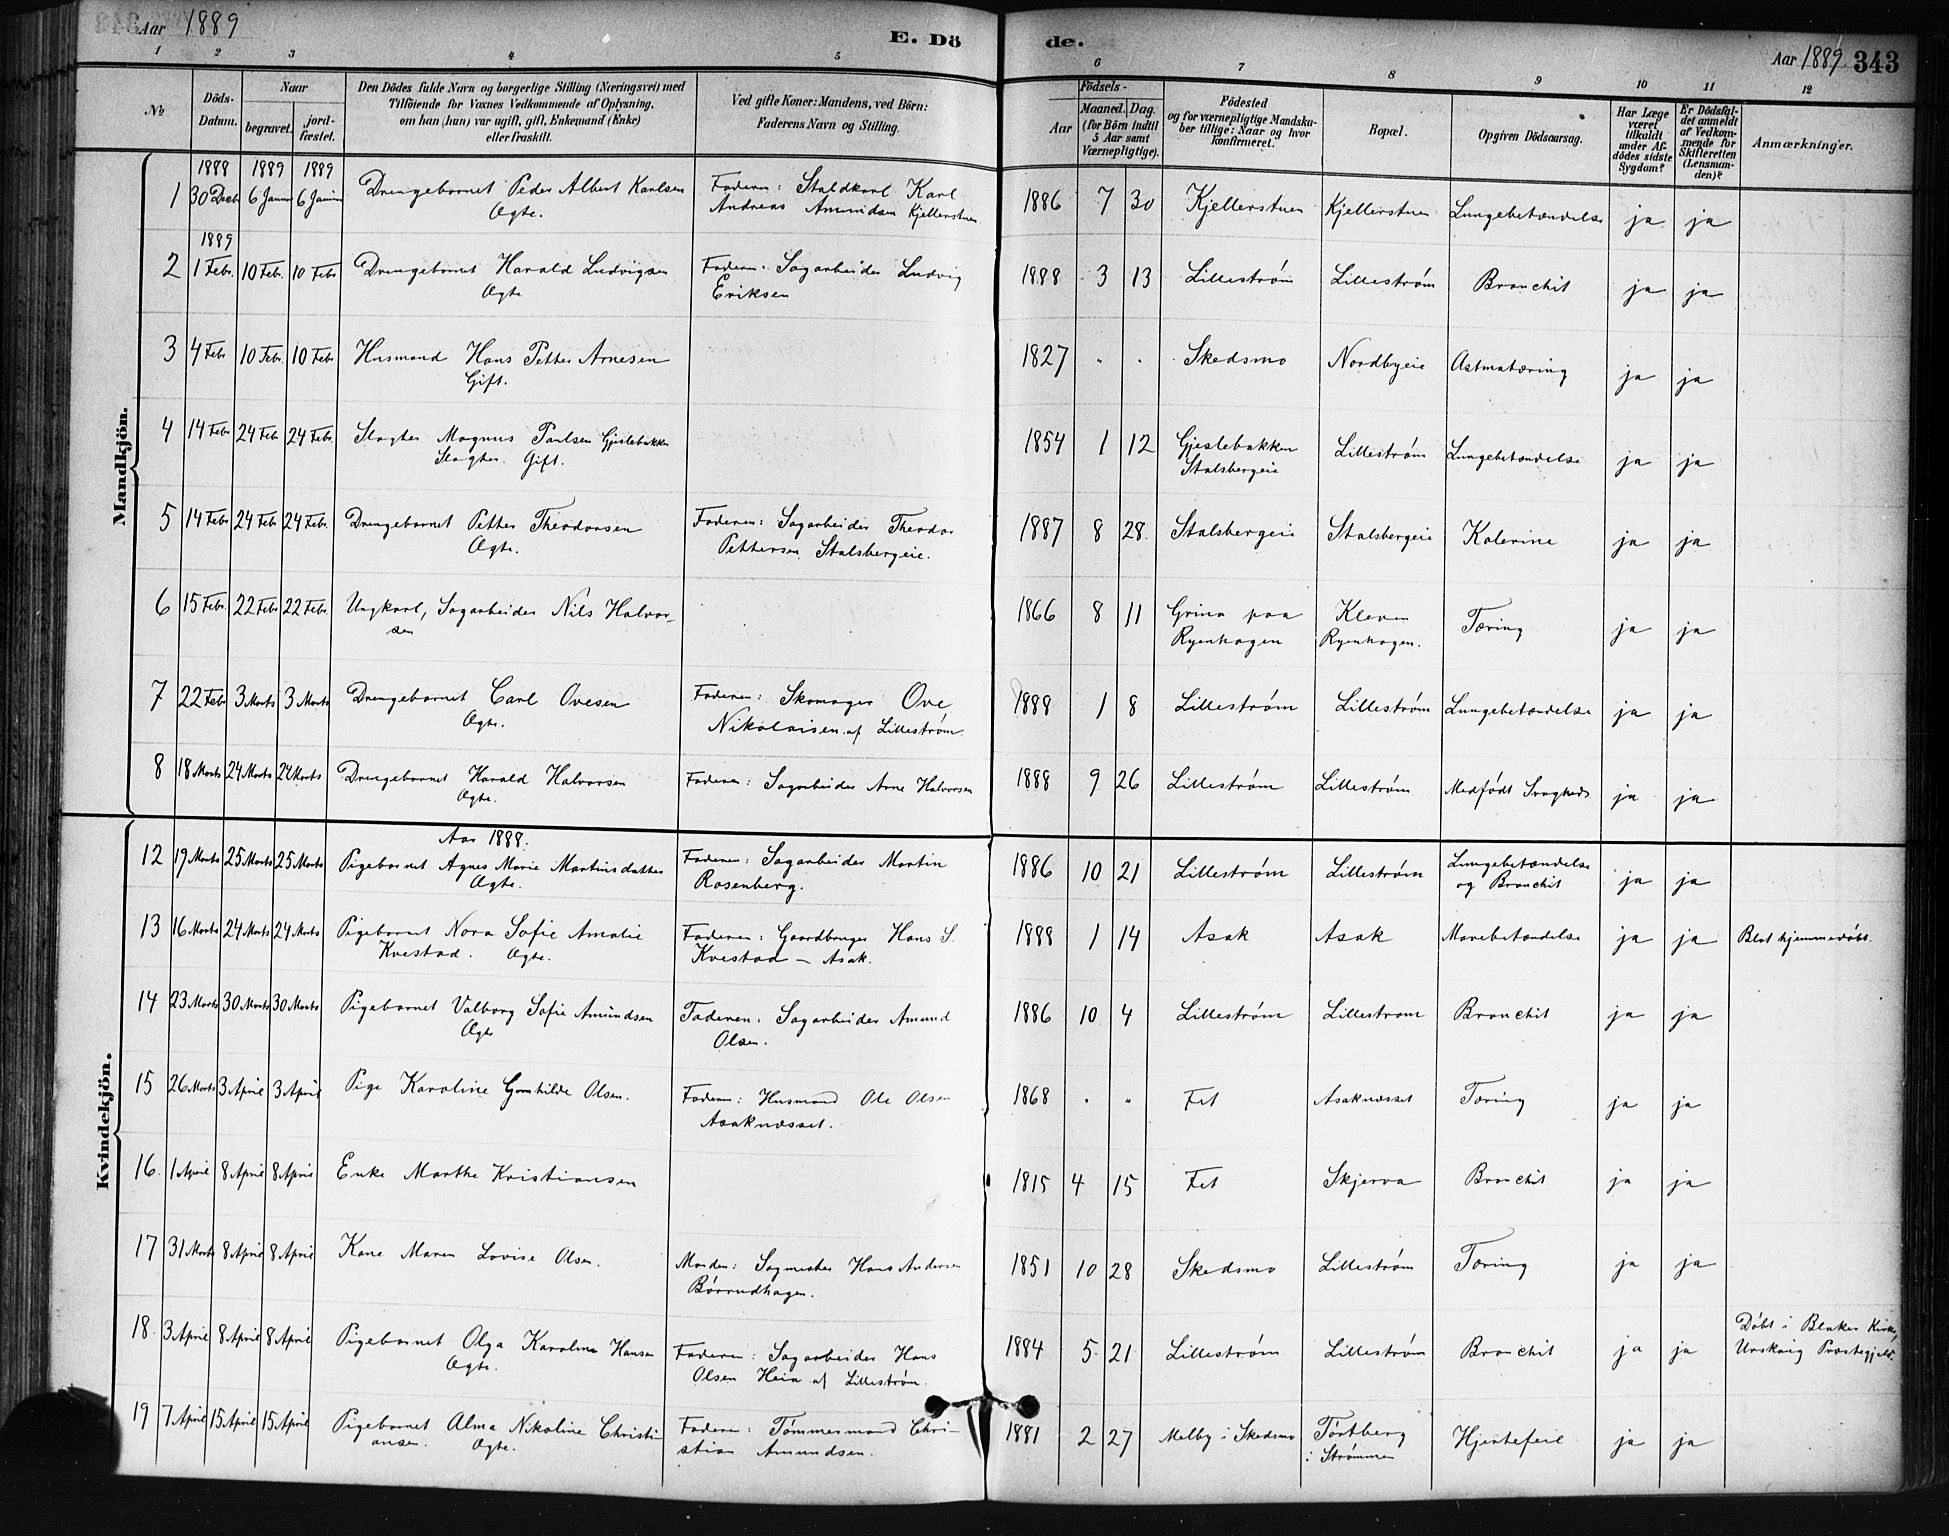 Aar 1889
E. Dö
de.
Aar 1889. 343
1 2 3 4 5 6 7 8 9 10 11 12
No
Döds-
Datum.
Naar
begravet.
jord-
fæstet.
Den Dödes fulde Navn og borgerlige Stilling (Næringsvei) med
Tilföiende for Voxnes Vedkommende af Oplysning,
om han (hun) var ugift, gift, Enkemand (Enke)
eller fraskilt.
Ved gifte Koner: Mandens, ved Börn:
Faderens Navn og Stilling.
Födsels-
Aar
Maaned. Dag.
(for Börn indtil
5 Aar samt
Værnepligtige).
Födested
og for værnepligtige Mandska-
ber tillige: Naar og hvor
konfirmeret.
Bopæl.
Opgiven Dödsaarsag.
Har Læge
været
tilkaldt
under Af-
dödes sidste
Sygdom?
Er Dödsfal-
det anmeldt
af Vedkom-
mende for
Skifteretten
(Lensman-
den)?
Anmærkninger.
Mandkjön.
1888 1889 1889
1 30 Decb 6 Januar 6 Januar Drengebarnet Peder Albert Karlsen Faderen: Staldkarl Karl 1886 7 30 Kjellerstuen Kjellerstuen Lungebetændelse ja ja
Ægte. Andreas Amundsen Kjellerstuen
1889
2 1 Febr. 10 Febr. 10 Febr Drengebarnet Harald Ludvigsen Faderen: Sagarbeider Ludvig 1888 3 13 Lillestrøm Lillestrøm Bronchit ja ja
Ægte Eriksen
3 4 Febr 10 Febr. 10 Febr Husmand Hans Petter Arnesen 1827 " " Skedsmo Nordbyeie Astmatæring ja ja
Gift.
4 14 Febr 24 Febr 24 Febr. Slagter Magnus Paulsen Gjeslebakken 1854 1 12 Gjeslebakken Lillestrøm Lungebetændelse ja ja
Slagter. Gift. Stalsbergeie
5 14 Febr 24 Febr 24 Febr. Drengebarnet Petter Theodorsen Faderen: Sagarbeider Theodor 1887 8 28. Stalsbergeie Stalsbergeie Kolerine ja ja
Ægte. Pettersen Stalsbergeie.
6 15 Febr. 22 Febr 22 Febr. Ungkarl, Sagarbeider Nils Halvor- 1866 8 11 Grina paa Kleven Tæring ja ja
sen Ryenhagen Ryenhagen.
7 22 Febr 3 Marts 3 Marts Drengebarnet Carl Ovesen Faderen: Skomager Ove 1888 1 8 Lillestrøm Lillestrøm Lungebetændelse ja ja
Ægte. Nikolaisen af Lillestrøm.
8 18 Marts 24 Marts 24 Marts Drengebarnet Harald Halvorsen Faderen: Sagarbeider Arne Halvorsen 1888 9 26 Lillestrøm Lillestrøm Medfødt Svaghed ja ja
Ægte.
Kvindekjön.
Aar 1888.
12 19 Marts 25 Marts 25 Marts Pigebarnet Agnes Marie Martinsdatter Faderen: Sagarbeider Martin 1886 10 21 Lillestrøm Lillestrøm Lungebetændelse ja ja
Ægte. Rosenberg. og Bronchit
13 16 Marts 24 Marts 24 Marts Pigebarnet Nora Sofie Amalie Faderen: Gaardbruger Hans S. 1888 1 14 Asak Asak Mavebetændelse ja ja Blot hjemmedøbt.
Kvestad. Ægte. Kvestad – Asak.
14 23 Marts 30 Marts 30 Marts Pigebarnet Valborg Sofie Amundsen Faderen: Sagarbeider Amund 1886 10 4 Lillestrøm Lillestrøm Bronchit ja ja
Ægte Olsen.
15 26 Marts 3 April 3 April Pige Karoline Gunhilde Olsen. Faderen: Husmand Ole Olsen 1868 " " Fet Asaknæsset Tæring ja ja
Asaknæsset.
16. 1 April 8 April 8 April Enke Marthe Kristiansen 1815 4 15 Fet Skjerva Bronchit ja ja
17 31 Marts 8 April 8 April Kone Maren Lovise Olsen. Manden: Sagmester Hans Andersen 1851 10 28 Skedsmo Lillestrøm Tæring ja ja
Børrudhagen.
18. 3 April 8 April 8 April Pigebarnet Olga Karoline Hansen Faderen: Sagarbeider Hans 1884 5 21 Lillestrøm Lillestrøm Bronchit ja ja Døbt i Blaker Kirke,
Ægte. Olsen Heia af Lillestrøm. Urskoug Præstegjeld.
19 7 April 15 April 15 April Pigebarnet Alma Nikoline Christi- Faderen: Tømmermand Chri- 1881 2 27 Melby i Skedsmo Tørtberg Hjertefeil ja ja
ansen. Ægte. stian Amundsen. i Strømmen